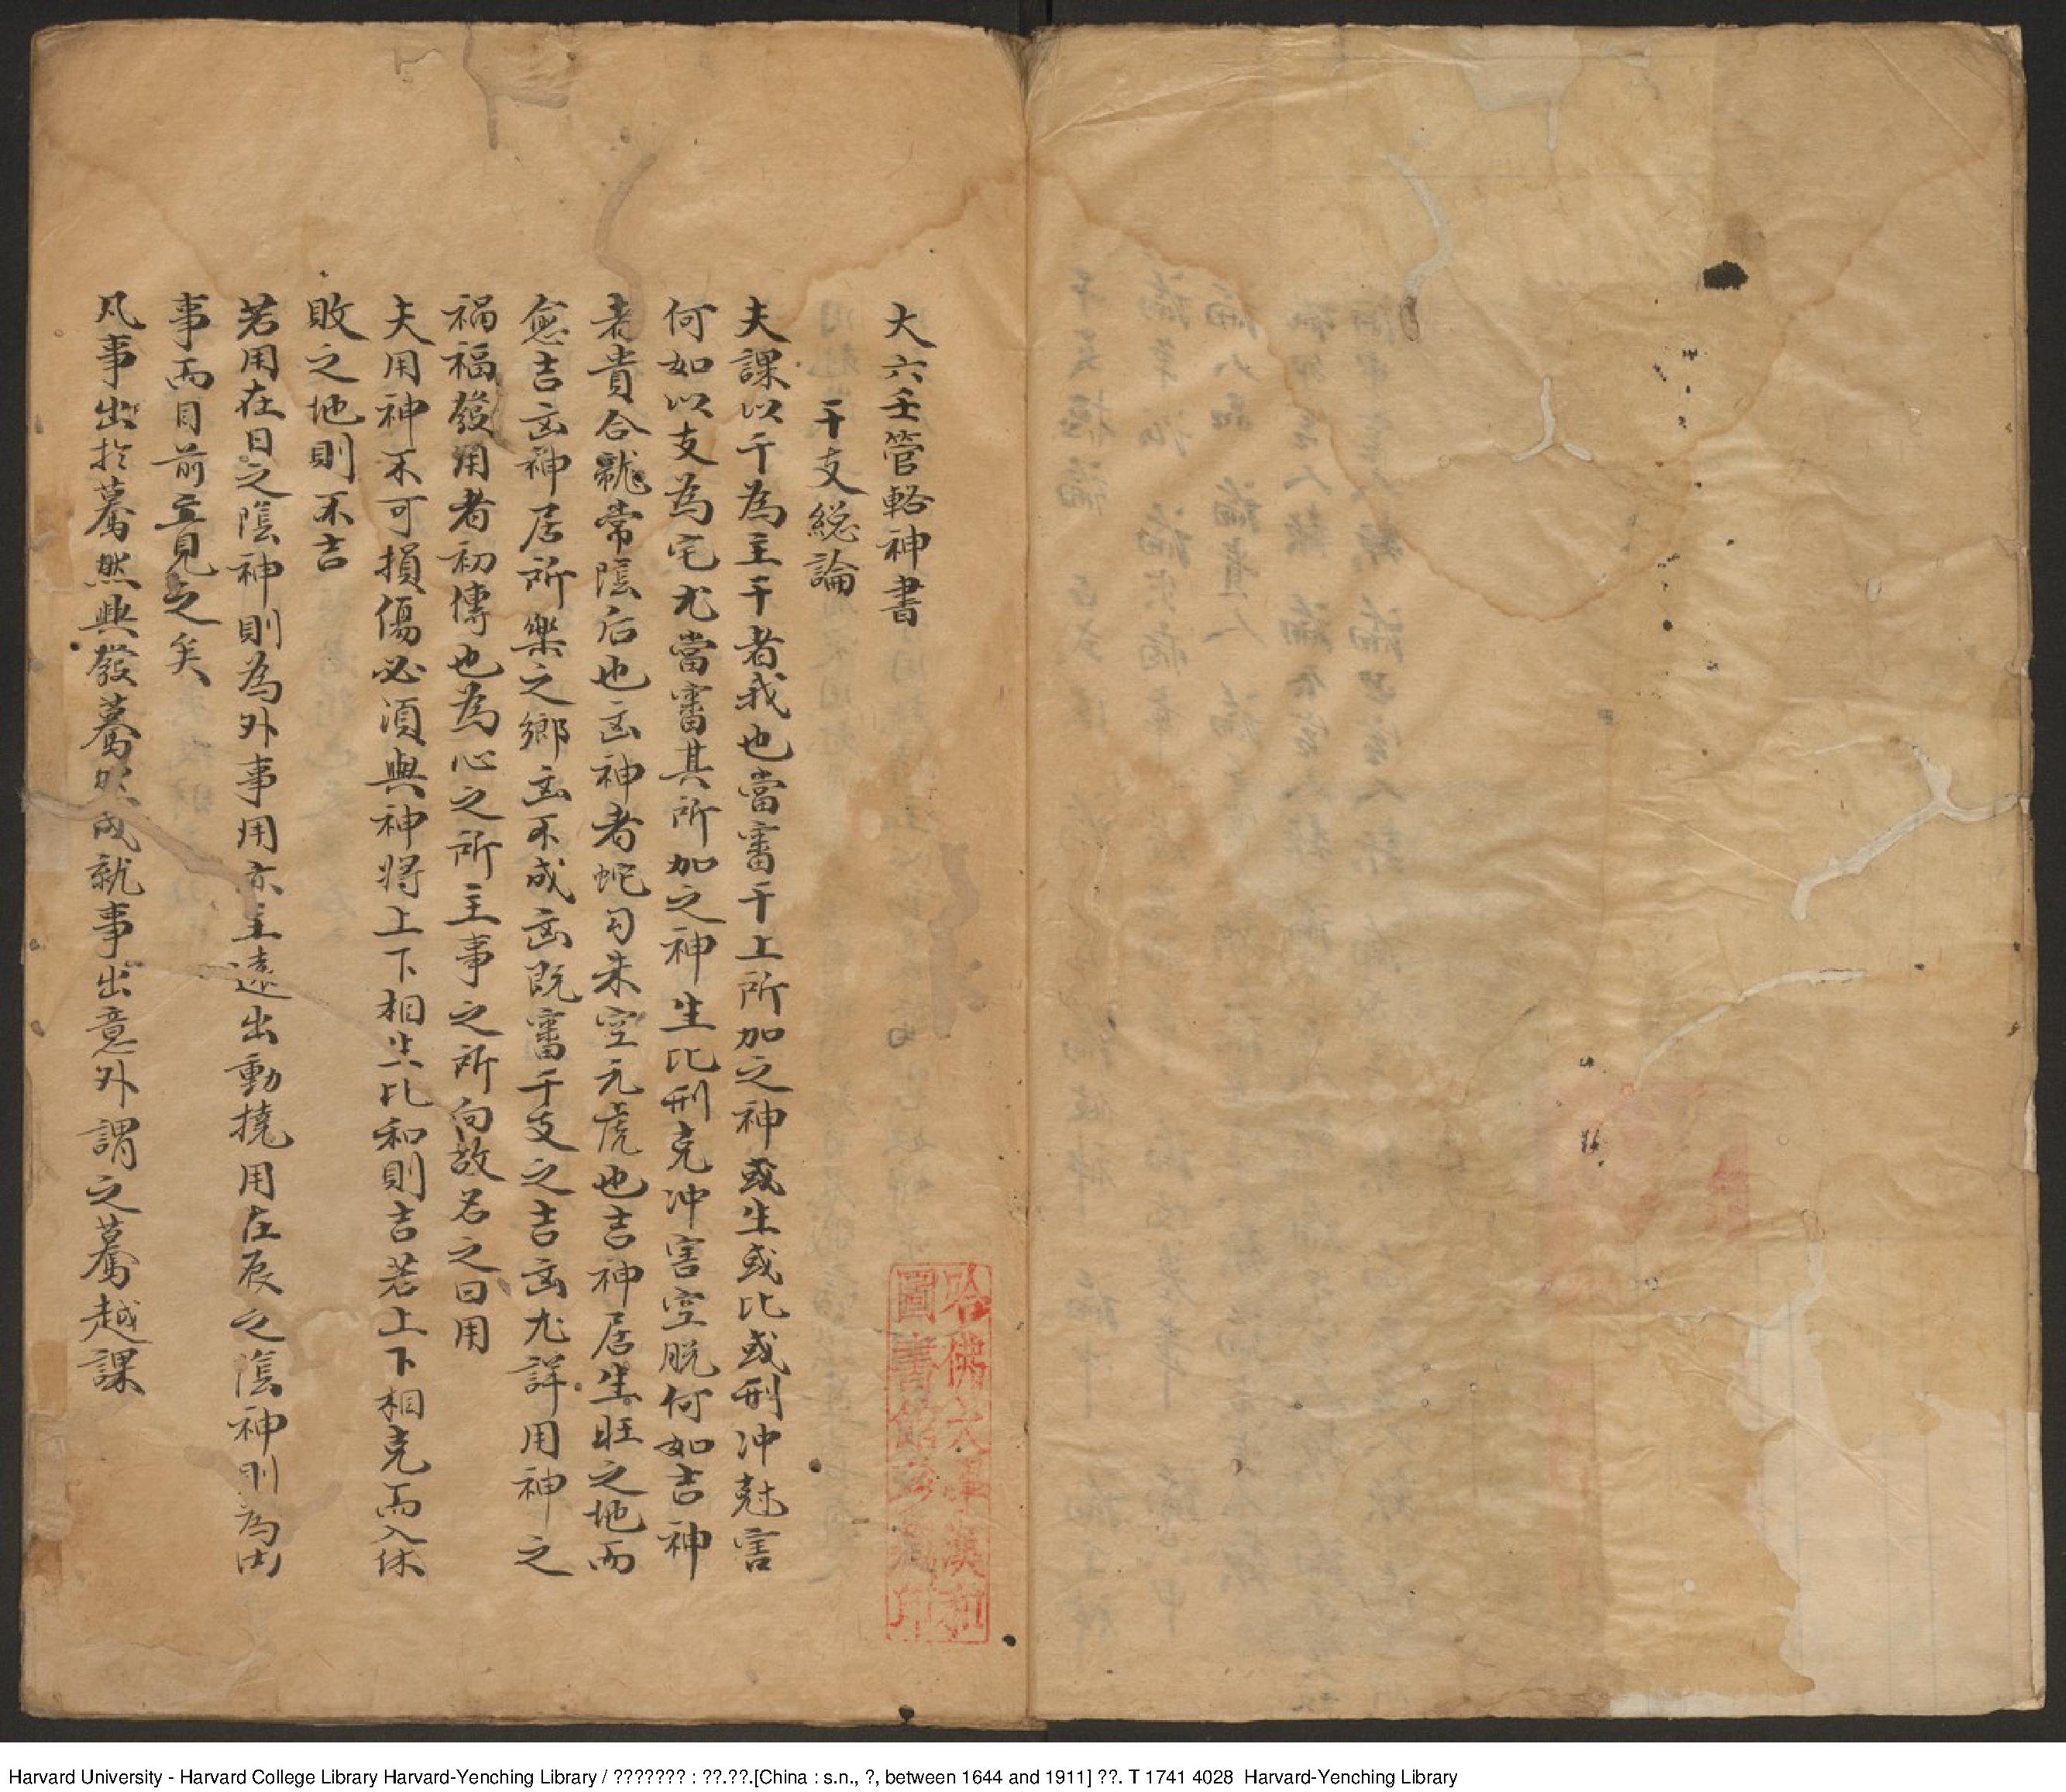 大六壬管輅神書
干支総論
夫課以干為主干者我也當審干上所加之神或生或比或刑冲尅害
何如以支為宅尤當審其所加之神生比刑克冲害空脱何如吉神
者貴合龍常陰后也凶神者蛇勾朱空元虎也吉神居生旺之地而
愈吉凶神居所樂之鄉主不成凶既審干支之吉凶尤詳用神之
禍福發用者初傳也為心之所主事之所向故名之曰用
夫用神不可損傷必須與神將上下相生比和則吉若上下相克而入休
敗之地則不吉
若用在日之陰神則為外事用亦主遠出動撓用在辰之陰神則為内
事而目前立見之矣
凡事出於驀然與發驀然成就事出意外謂之驀越課
哈佛大學漢和
圖書館珍藏印
Harvard University - Harvard College Library Harvard-Yenching Library / ??????? : ??.??.[China : s.n., ?, between 1644 and 1911] ??. T 1741 4028 Harvard-Yenching Library